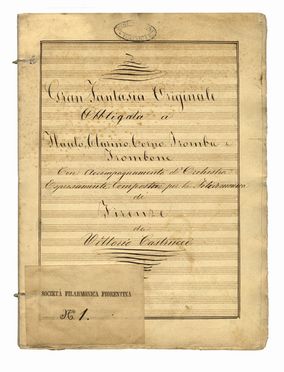 Gran Fantasia Originale
Obbligata a
Flauto, Clarino, Corno, Tromba e
Trombone
Con Accompagnamento d'Orchestra
Espressamente Composta per la Filarmonica
di
Firenze
da
Vittorio
SOCIETÀ FILARMONICA FIORENTINA
N.º 1.